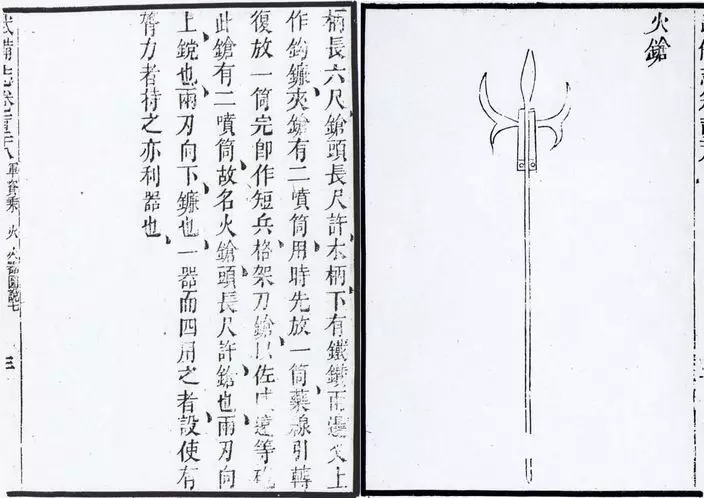 火鎗
柄長六尺鎗頭長尺許木柄下有鐵鐏兩邊叉上
作鈎鐮夾鎗有二噴筒用時先放一筒藥線引轉
復放一筒完卽作短兵格架刀鎗以佐遠等
此鎗有二噴筒故名火鎗頭長尺許鎗也兩刃向
上鎲也兩刃向下鐮也一器而四用之者設使有
膂力者持之亦利器也
武備志卷 軍資乘 火 火器圖說七 三